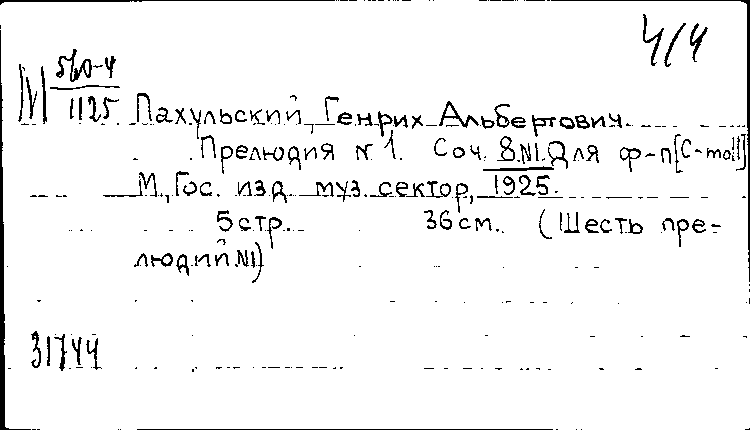 4/4
М 560-4
1125 Пахульский, Генрих Альбертович.
Прелюдия N 1. Соч. 8.N1. Для ф-п [C-moll]
М., Гос. изд муз. сектор, 1925.
5 стр. 36 см. (Шесть пре-
людий N1)
31744